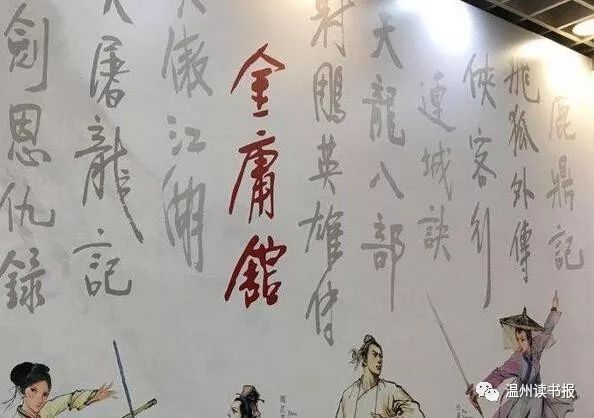 鹿鼎記
飛狐外傳
俠客行
連城訣
天龍八部
射鵰英雄傳
金庸館
傲江湖
天屠龍記
劍恩仇錄
温州读书报